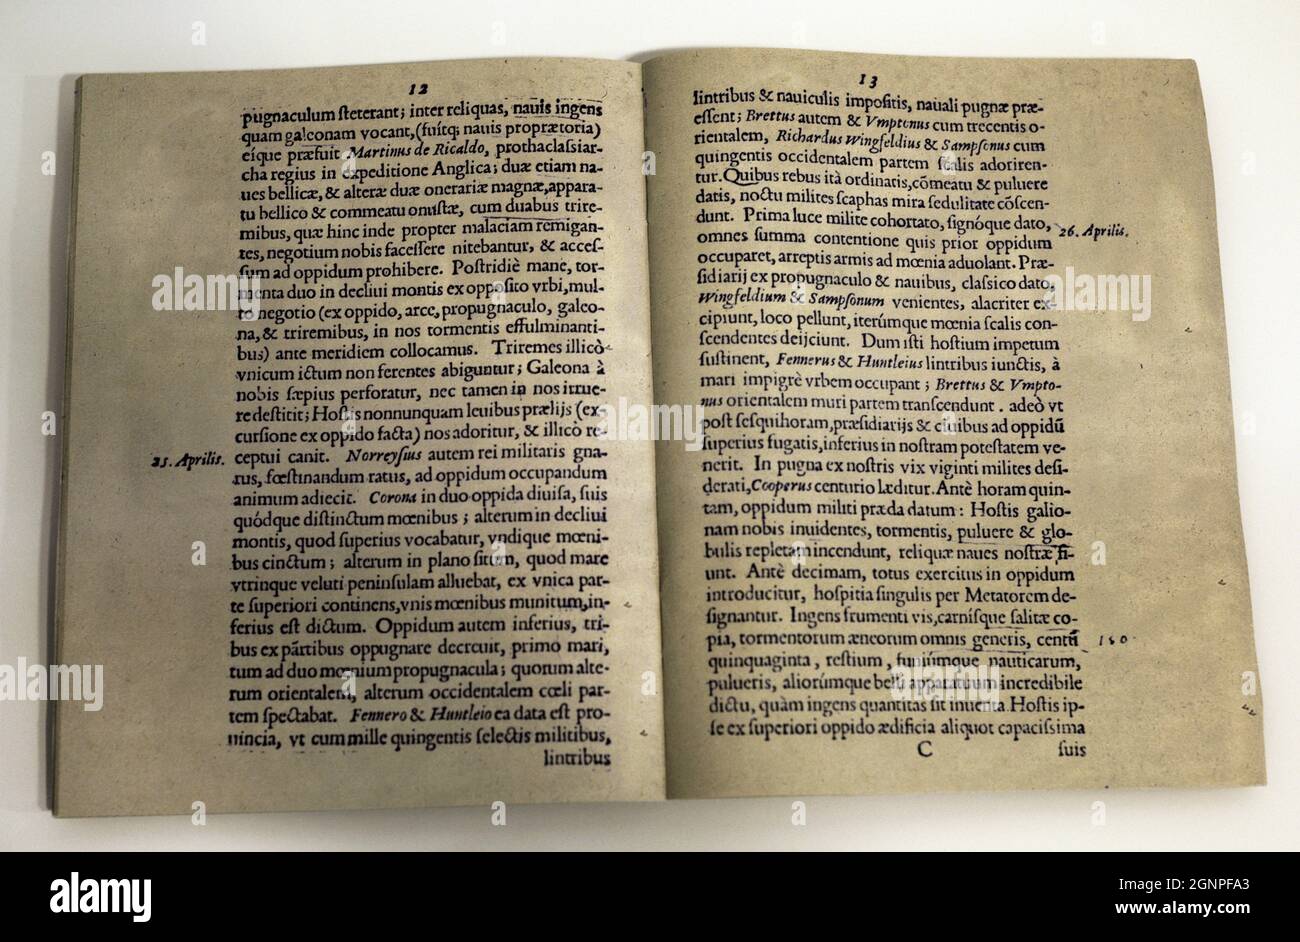 12
pugnaculum ſteterant; inter reliquas, nauis ingens
quam galeonam vocant, (fuítq; nauis proprætoria)
eíque præfuit Martinus de Ricaldo, prothaclaſſiar-
cha regius in expeditione Anglica; duæ etiam na-
ues bellicæ, & alteræ duæ onerariæ magnæ, appara-
tu bellico & commeatu onuſtæ, cum duabus trire-
mibus, quæ hinc inde propter malaciam remigan-
tes, negotium nobis faceſſere nitebantur, & acceſ-
ſum ad oppidum prohibere. Poſtridiè mane, tor-
menta duo in decliui montis ex oppoſito vrbi, mul-
to negotio (ex oppido, arce, propugnaculo, galeo-
na, & triremibus, in nos tormentis effulminanti-
bus) ante meridiem collocamus. Triremes illicò
vnicum ictum non ferentes abiguntur; Galeona à
nobis ſæpius perforatur, nec tamen in nos itrue-
re deſtitit; Hoſtis nonnunquam leuibus prælijs (ex-
curſione ex oppido facta) nos adoritur, & illicò re-
ceptui canit. Norreyſius autem rei militaris gna-
25. Aprilis.
rus, fœſtinandum ratus, ad oppidum occupandum
animum adiecit. Corona in duo oppida diuiſa, ſuis
quóque diſtinctum mœnibus; alterum in decliui
montis, quod ſuperius vocabatur, vndique mœni-
bus cinctum; alterum in plano ſitum, quod mare
vtrinque veluti peninſulam alluebat, ex vnica par-
te ſuperiori continens, vnis mœnibus munitum, in-
ferius eſt dictum. Oppidum autem inferius, tri-
bus ex pártibus oppugnare decreuit, primo mari,
tum ad duo mœnium propugnacula; quorum alte-
rum orientalem, alterum occidentalem cœli par-
tem ſpectabat. Fennero & Huntleio ea data eſt pro-
uincia, vt cum mille quingentis ſelectis militibus,
lintribus
13
lintribus & nauiculis impoſitis, nauali pugnæ præ-
eſſent; Brettus autem & Vmptonus cum trecentis o-
rientalem, Richardus Wingfeldius & Sampſonus cum
quingentis occidentalem partem ſcalis adoriren-
tur. Quibus rebus ità ordinatis, cõmeatu & puluere
datis, noctu milites ſcaphas mira ſedulitate cõſcen-
dunt. Prima luce milite cohortato, ſignóque dato,
26. Aprilis.
omnes ſumma contentione quis prior oppidum
occuparet, arreptis armis ad mœnia aduolant. Præ-
ſidiarij ex propugnaculo & nauibus, claſſico dato,
Wingfeldium & Sampſonum venientes, alacriter ex-
cipiunt, loco pellunt, iterúmque mœnia ſcalis con-
ſcendentes deijciunt. Dum iſti hoſtium impetum
ſuſtinent, Fennerus & Huntleius lintribus iunctis, à
mari impigrè vrbem occupant; Brettus & Vmpto-
nus orientalem muri partem tranſcendunt. adeò vt
poſt ſeſquihoram, præſidiarijs & ciuibus ad oppidũ
ſuperius fugatis, inferius in noſtram poteſtatem ve-
nerit. In pugna ex noſtris vix viginti milites deſi-
derati, Cooperus centurio læditur. Antè horam quin-
tam, oppidum militi præda datum: Hoſtis galio-
nam nobis inuidentes, tormentis, puluere & glo-
bulis repletam incendunt, reliquæ naues noſtræ fi-
unt. Antè decimam, totus exercitus in oppidum
introducitur, hoſpitia ſingulis per Metatorem de-
ſignantur. Ingens frumenti vis, carníſque ſalitæ co-
pia, tormentorum æneorum omnis generis, centũ
150.
quinquaginta, reſtium, funiúmque nauticarum,
pulueris, aliorúmque belli apparatuum incredibile
dictu, quàm ingens quantitas ſit inuenta. Hoſtis ip-
ſe ex ſuperiori oppido ædificia aliquot capaciſſima
C
ſuis
alamy
Image ID: 2GNPFA3
www.alamy.com